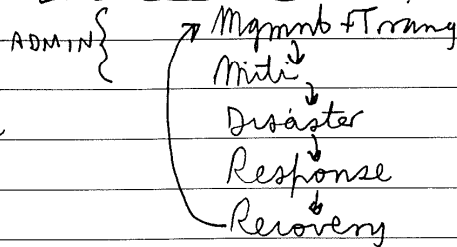 ADMIN { Mgmnt + Traning
Miti
Disaster
Response
Recovery